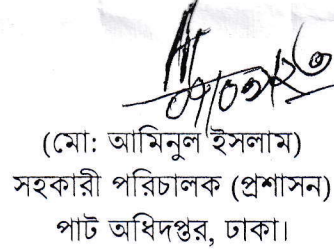 (মো: আমিনুল ইসলাম)
সহকারী পরিচালক (প্রশাসন)
পাট অধিদপ্তর, ঢাকা।